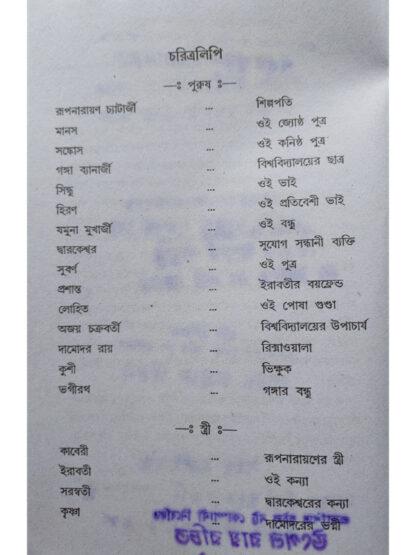 চরিত্রলিপি
—ঃ পুরুষ ঃ—
রূপনারায়ণ চ্যাটার্জী ... শিল্পপতি
মানস ... ওই জ্যেষ্ঠ পুত্র
সঙ্কোস ... ওই কনিষ্ঠ পুত্র
গঙ্গা ব্যানার্জী ... বিশ্ববিদ্যালয়ের ছাত্র
সিন্ধু ... ওই ভাই
হিরণ ... ওই প্রতিবেশী ভাই
যমুনা মুখার্জী ... ওই বন্ধু
দ্বারকেশ্বর ... সুযোগ সন্ধানী ব্যক্তি
সুবর্ণ ... ওই পুত্র
প্রশান্ত ... ইরাবতীর বয়ফ্রেন্ড
লোহিত ... ওই পোষা গুণ্ডা
অজয় চক্রবর্তী ... বিশ্ববিদ্যালয়ের উপাচার্য
দামোদর রায় ... রিক্সাওয়ালা
কুশী ... ভিক্ষুক
ভগীরথ ... গঙ্গার বন্ধু
—ঃ স্ত্রী ঃ—
কাবেরী ... রূপনারায়ণের স্ত্রী
ইরাবতী ... ওই কন্যা
সরস্বতী ... দ্বারকেশ্বরের কন্যা
কৃষ্ণা ... দামোদরের ভগ্নী